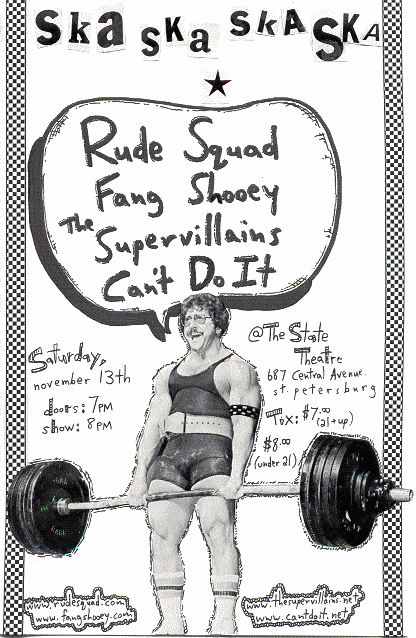 Ska ska skaska
Rude Squad
Fang Shooey
The Supervillains
Can't Do It
@The State
Theatre
687 Central Avenue.
st. petersburg
Tix: $7.00
(21+up)
$8.00
(under 21)
Saturday,
november 13th
doors: 7PM
show: 8PM
www.rudesquad.com
www.fangshooey.com
www.thesupervillains.net
www.cantdoit.net